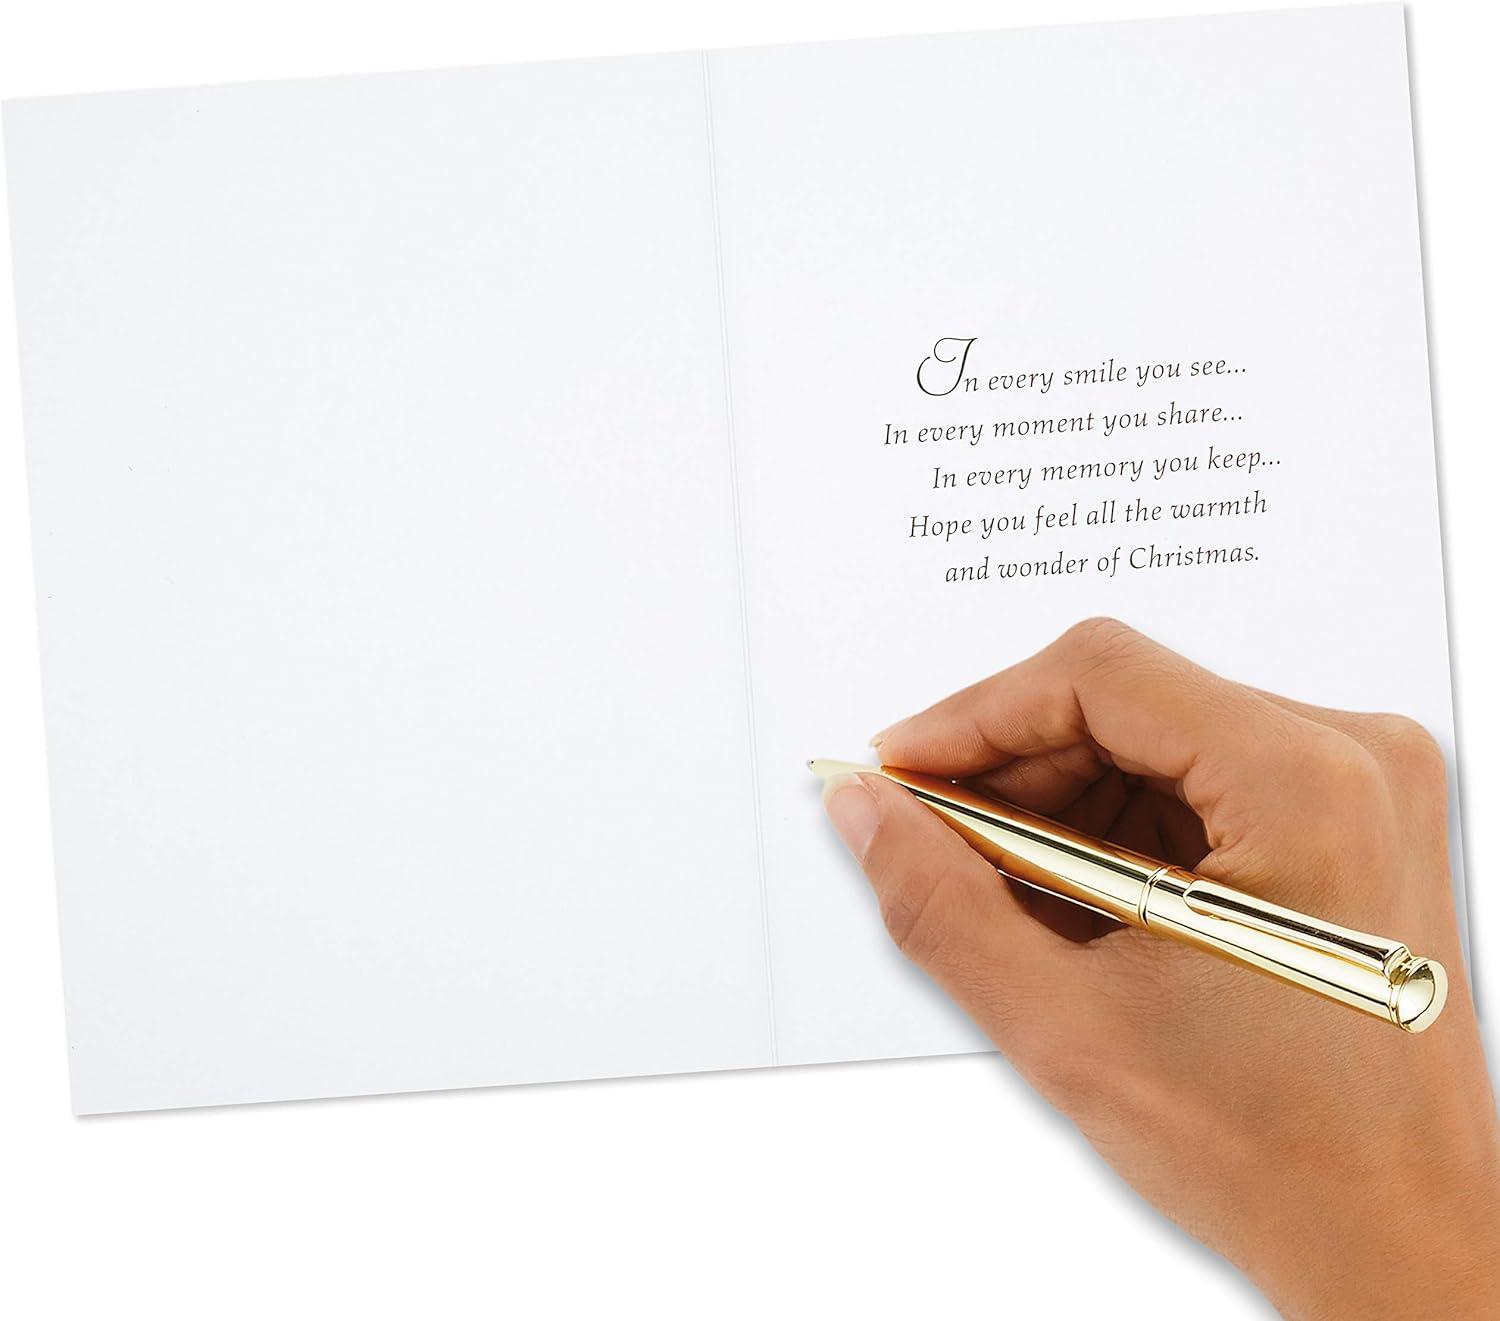 In every smile you see...
In every moment you share...
In every memory you keep...
Hope you feel all the warmth
and wonder of Christmas.